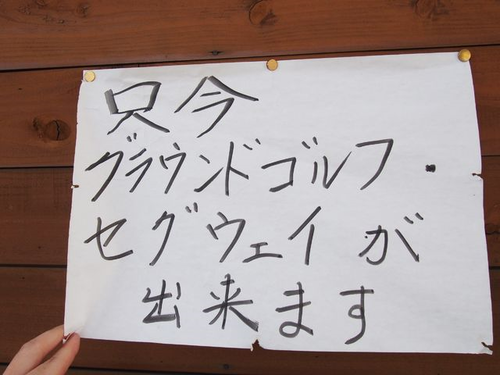 只今
グラウンドゴルフ・
セグウェイが
出来ます